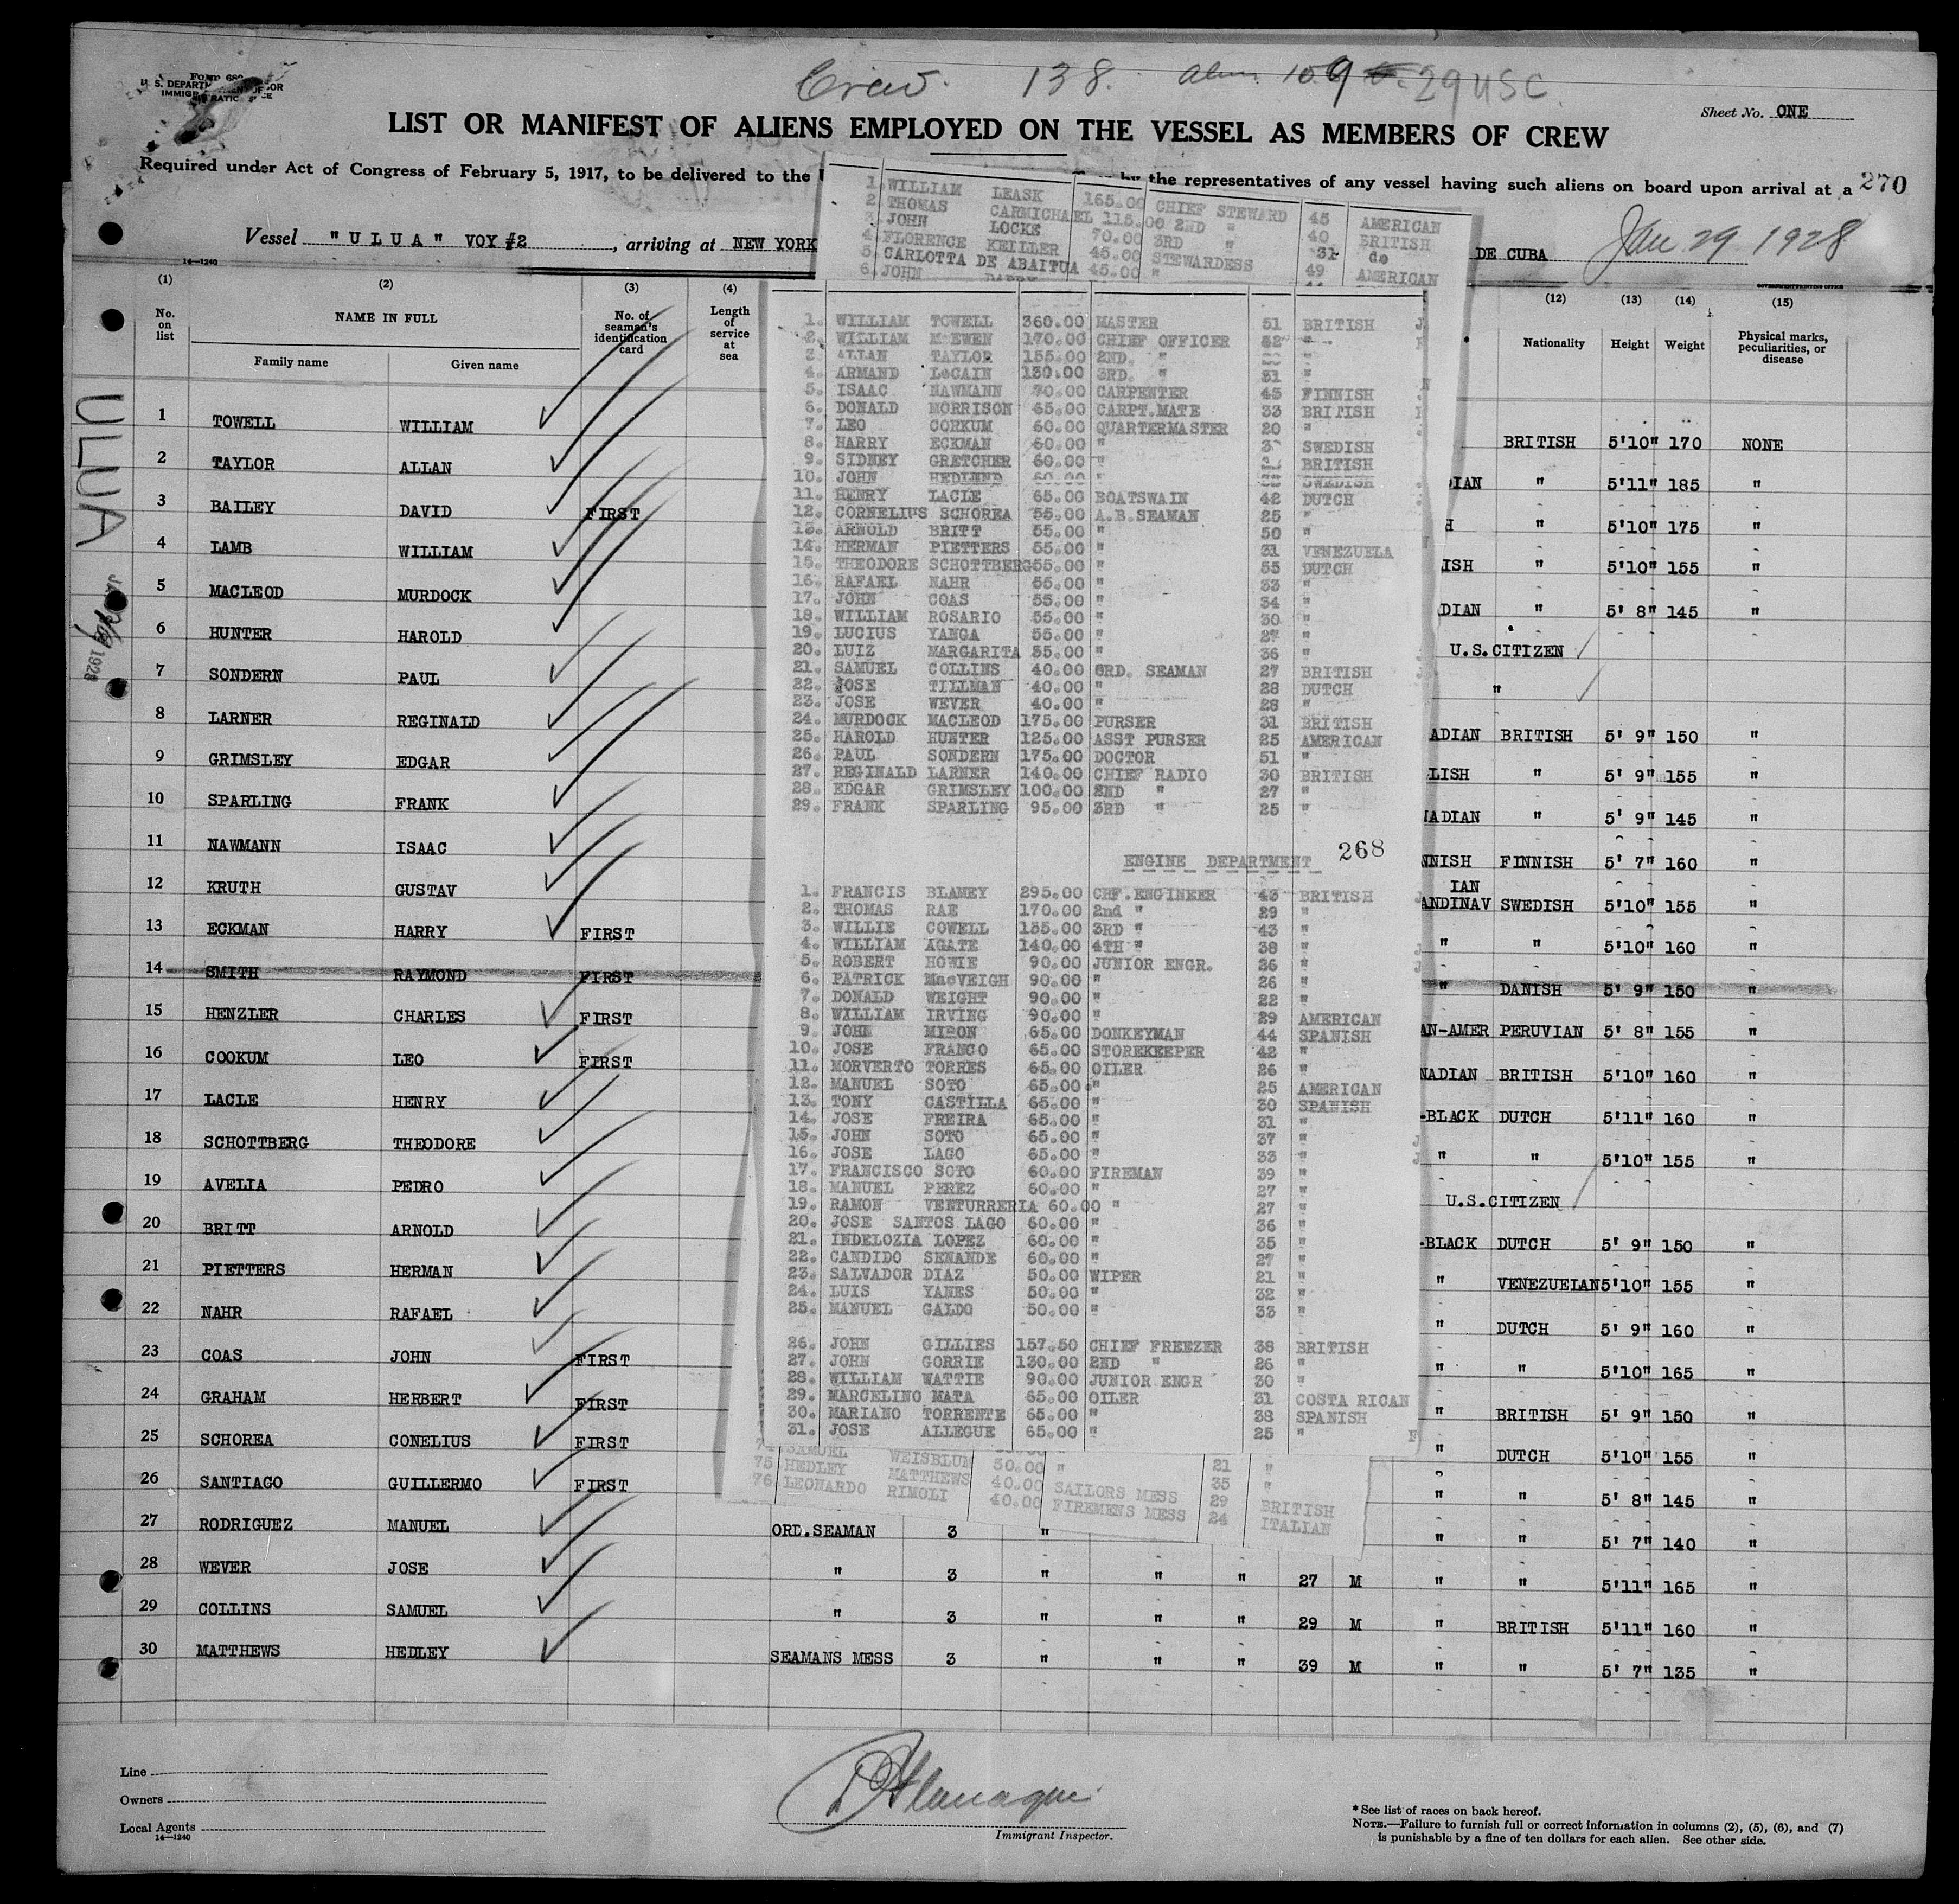 Crew. 138. alien 109 29 USC
Form 680
U. S. DEPARTMENT OF LABOR
IMMIGRATION SERVICE
Sheet No. ONE
LIST OR MANIFEST OF ALIENS EMPLOYED ON THE VESSEL AS MEMBERS OF CREW
Required under Act of Congress of February 5, 1917, to be delivered to the by the representatives of any vessel having such aliens on board upon arrival at a 270
Vessel "ULUA" VOY #2, arriving at NEW YORK DE CUBA Jan 29 1928
14—1240
1. WILLIAM LEASK 165.00 CHIEF STEWARD 45 AMERICAN
2. THOMAS CARMICHAEL 115.00 2ND " 40 BRITISH
3. JOHN LOCKE 70.00 3RD " 31 do
4. FLORENCE KEILLER 45.00 STEWARDESS 49 AMERICAN
5. CARLOTTA DE ABAITUA 45.00 "
6. JOHN
(1) (2) (3) (4) (12) (13) (14) (15)
No. on list NAME IN FULL No. of seaman's identification card Length of service at sea Nationality Height Weight Physical marks, peculiarities, or disease
Family name Given name
ULUA
1928
1 TOWELL WILLIAM BRITISH 5'10" 170 NONE
2 TAYLOR ALLAN DIAN " 5'11" 185 "
3 BAILEY DAVID FIRST H " 5'10" 175 "
4 LAMB WILLIAM ISH " 5'10" 155 "
5 MACLEOD MURDOCK DIAN " 5' 8" 145 "
6 HUNTER HAROLD U.S.CITIZEN
7 SONDERN PAUL "
8 LARNER REGINALD ADIAN BRITISH 5' 9" 150 "
9 GRIMSLEY EDGAR LISH " 5' 9" 155 "
10 SPARLING FRANK ADIAN " 5' 9" 145 "
11 NAWMANN ISAAC NNISH FINNISH 5' 7" 160 "
12 KRUTH GUSTAV IAN ANDINAV SWEDISH 5'10" 155 "
13 ECKMAN HARRY FIRST " " 5'10" 160 "
14 SMITH RAYMOND FIRST " DANISH 5' 9" 150 "
15 HENZLER CHARLES FIRST AN-AMER PERUVIAN 5' 8" 155 "
16 COOKUM LEO FIRST NADIAN BRITISH 5'10" 160 "
17 LACLE HENRY -BLACK DUTCH 5'11" 160 "
18 SCHOTTBERG THEODORE " " 5'10" 155 "
19 AVELIA PEDRO U.S.CITIZEN
20 BRITT ARNOLD -BLACK DUTCH 5' 9" 150 "
21 PIETTERS HERMAN " VENEZUELAN 5'10" 155 "
22 NAHR RAFAEL " DUTCH 5' 9" 160 "
23 COAS JOHN FIRST " " 5'10" 165 "
24 GRAHAM HERBERT FIRST " BRITISH 5' 9" 150 "
25 SCHOREA CONELIUS FIRST " DUTCH 5'10" 155 "
26 SANTIAGO GUILLERMO FIRST " " 5' 8" 145 "
27 RODRIGUEZ MANUEL ORD.SEAMAN 3 " " " 5' 7" 140 "
28 WEVER JOSE " 3 " " " 27 M " " 5'11" 165 "
29 COLLINS SAMUEL " 3 " " " 29 M " BRITISH 5'11" 160 "
30 MATTHEWS HEDLEY SEAMANS MESS 3 " " " 39 M " " 5' 7" 135 "
1. WILLIAM TOWELL 360.00 MASTER 51 BRITISH
2. WILLIAM McEWEN 170.00 CHIEF OFFICER 42 "
3. ALLAN TAYLOR 155.00 2ND. " "
4. ARMAND LeCAIN 130.00 3RD. " 31 "
5. ISAAC NAWMANN 70.00 CARPENTER 45 FINNISH
6. DONALD MORRISON 65.00 CARPT.MATE 33 BRITISH
7. LEO CORKUM 60.00 QUARTERMASTER 20 "
8. HARRY ECKMAN 60.00 " SWEDISH
9. SIDNEY GRETCHER 60.00 " BRITISH
10. JOHN HEDLUND 60.00 " SWEDISH
11. HENRY LACLE 65.00 BOATSWAIN 42 DUTCH
12. CORNELIUS SCHOREA 55.00 A.B.SEAMAN 25 "
13. ARNOLD BRITT 55.00 " 50 "
14. HERMAN PIETTERS 55.00 " 31 VENEZUELA
15. THEODORE SCHOTTBERG 55.00 " 55 DUTCH
16. RAFAEL NAHR 55.00 " 33 "
17. JOHN COAS 55.00 " 34 "
18. WILLIAM ROSARIO 55.00 " 30 "
19. LUCIUS YANGA 55.00 " 27 "
20. LUIZ MARGARITA 55.00 " 36 "
21. SAMUEL COLLINS 40.00 ORD. SEAMAN 27 BRITISH
22. JOSE TILLMAN 40.00 " 28 DUTCH
23. JOSE WEVER 40.00 " 28 "
24. MURDOCK MACLEOD 175.00 PURSER 31 BRITISH
25. HAROLD HUNTER 125.00 ASST PURSER 25 AMERICAN
26. PAUL SONDERN 175.00 DOCTOR 51 "
27. REGINALD LARNER 140.00 CHIEF RADIO 30 BRITISH
28. EDGAR GRIMSLEY 100.00 2ND " 27 "
29. FRANK SPARLING 95.00 3RD " 25 "
ENGINE DEPARTMENT 268
1. FRANCIS BLAMEY 295.00 CHF.ENGINEER 43 BRITISH
2. THOMAS RAE 170.00 2nd " 29 "
3. WILLIE COWELL 155.00 3RD " 43 "
4. WILLIAM AGATE 140.00 4TH " 38 "
5. ROBERT HOWIE 90.00 JUNIOR ENGR. 26 "
6. PATRICK MacVEIGH 90.00 " 26 "
7. DONALD WEIGHT 90.00 " 22 "
8. WILLIAM IRVING 90.00 " 29 AMERICAN
9. JOHN MIRON 65.00 DONKEYMAN 44 SPANISH
10. JOSE FRANCO 65.00 STOREKEEPER 42 "
11. MORVERTO TORRES 65.00 OILER 26 "
12. MANUEL SOTO 65.00 " 25 AMERICAN
13. TONY CASTILLA 65.00 " 30 SPANISH
14. JOSE FREIRA 65.00 " 31 "
15. JOHN SOTO 65.00 " 37 "
16. JOSE LAGO 65.00 " 33 "
17. FRANCISCO SOTO 60.00 FIREMAN 39 "
18. MANUEL PEREZ 60.00 " 27 "
19. RAMON VENTURRERIA 60.00 " 27 "
20. JOSE SANTOS LAGO 60.00 " 36 "
21. INDELOZIA LOPEZ 60.00 " 35 "
22. CANDIDO SENANDE 60.00 " 27 "
23. SALVADOR DIAZ 50.00 WIPER 21 "
24. LUIS YANES 50.00 " 32 "
25. MANUEL GALDO 50.00 " 33 "
26. JOHN GILLIES 157.50 CHIEF FREEZER 38 BRITISH
27. JOHN GORRIE 130.00 2ND " 26 "
28. WILLIAM WATTIE 90.00 JUNIOR ENGR 30 "
29. MARCELINO MATA 65.00 OILER 31 COSTA RICAN
30. MARIANO TORRENTE 65.00 " 38 SPANISH
31. JOSE ALLEGUE 65.00 " 25 "
74 SAMUEL WEISBLUM 30.00 " 21 "
75 HEDLEY MATTHEWS 40.00 SAILORS MESS 35 "
76 LEONARDO RIMOLI 40.00 FIREMENS MESS 29 BRITISH
24 ITALIAN
Line
Owners
Local Agents
14—1240
Immigrant Inspector.
*See list of races on back hereof.
NOTE.—Failure to furnish full or correct information in columns (2), (5), (6), and (7)
is punishable by a fine of ten dollars for each alien. See other side.